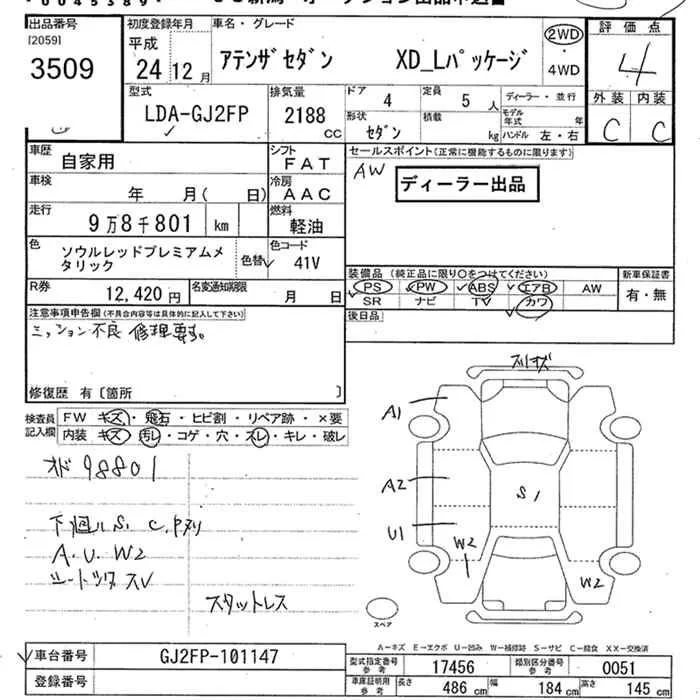 *0045389*
出品番号
[2059]
3509
初度登録年月
平成
24 12月
車名・グレード
アテンザセダン XD_Lパッケージ
2WD
4WD
評価点
4
外装 内装
C C
型式
LDA-GJ2FP
排気量
2188
CC
ドア 4
定員 5 人
形状 セダン
積載 kg
ディーラー・並行
モデル年式 年
ハンドル 左・右
車歴 自家用
シフト FAT
車検 年 月( 日)
冷房 AAC
走行 9万8千801 km
燃料 軽油
色 ソウルレッドプレミアムメタリック
色替
色コード 41V
R券 12,420 円
名変通知期限 月 日
セールスポイント(正常に機能するものに限ります)
AW
ディーラー出品
装備品 (純正品に限り○をつけてください)
PS PW ABS エアB AW
SR ナビ TV カワ
新車保証書
有・無
後日品
注意事項申告欄(不具合内容等は具体的に記入して下さい)
ミッション不良 修理要す。
修復歴 有〔箇所 〕
検査員記入欄
FW キズ・飛石・ヒビ割・リペア跡・×要
内装 キズ・汚レ・コゲ・穴・スレ・キレ・破レ
オド98801
下廻リ S1
A.U.W2
シートシワ スレ
スタットレス
スリキズ
A1
A2
U1
S1
W2
W2
スペア
A-キズ E-エクボ U-凹み W-補修跡 S-サビ C-腐食 XX-交換済
車台番号 GJ2FP-101147
登録番号
型式指定番号 参考 17456
類別区分番号 参考 0051
車庫証明用 参考 長さ 486 cm 幅 184 cm 高さ 145 cm